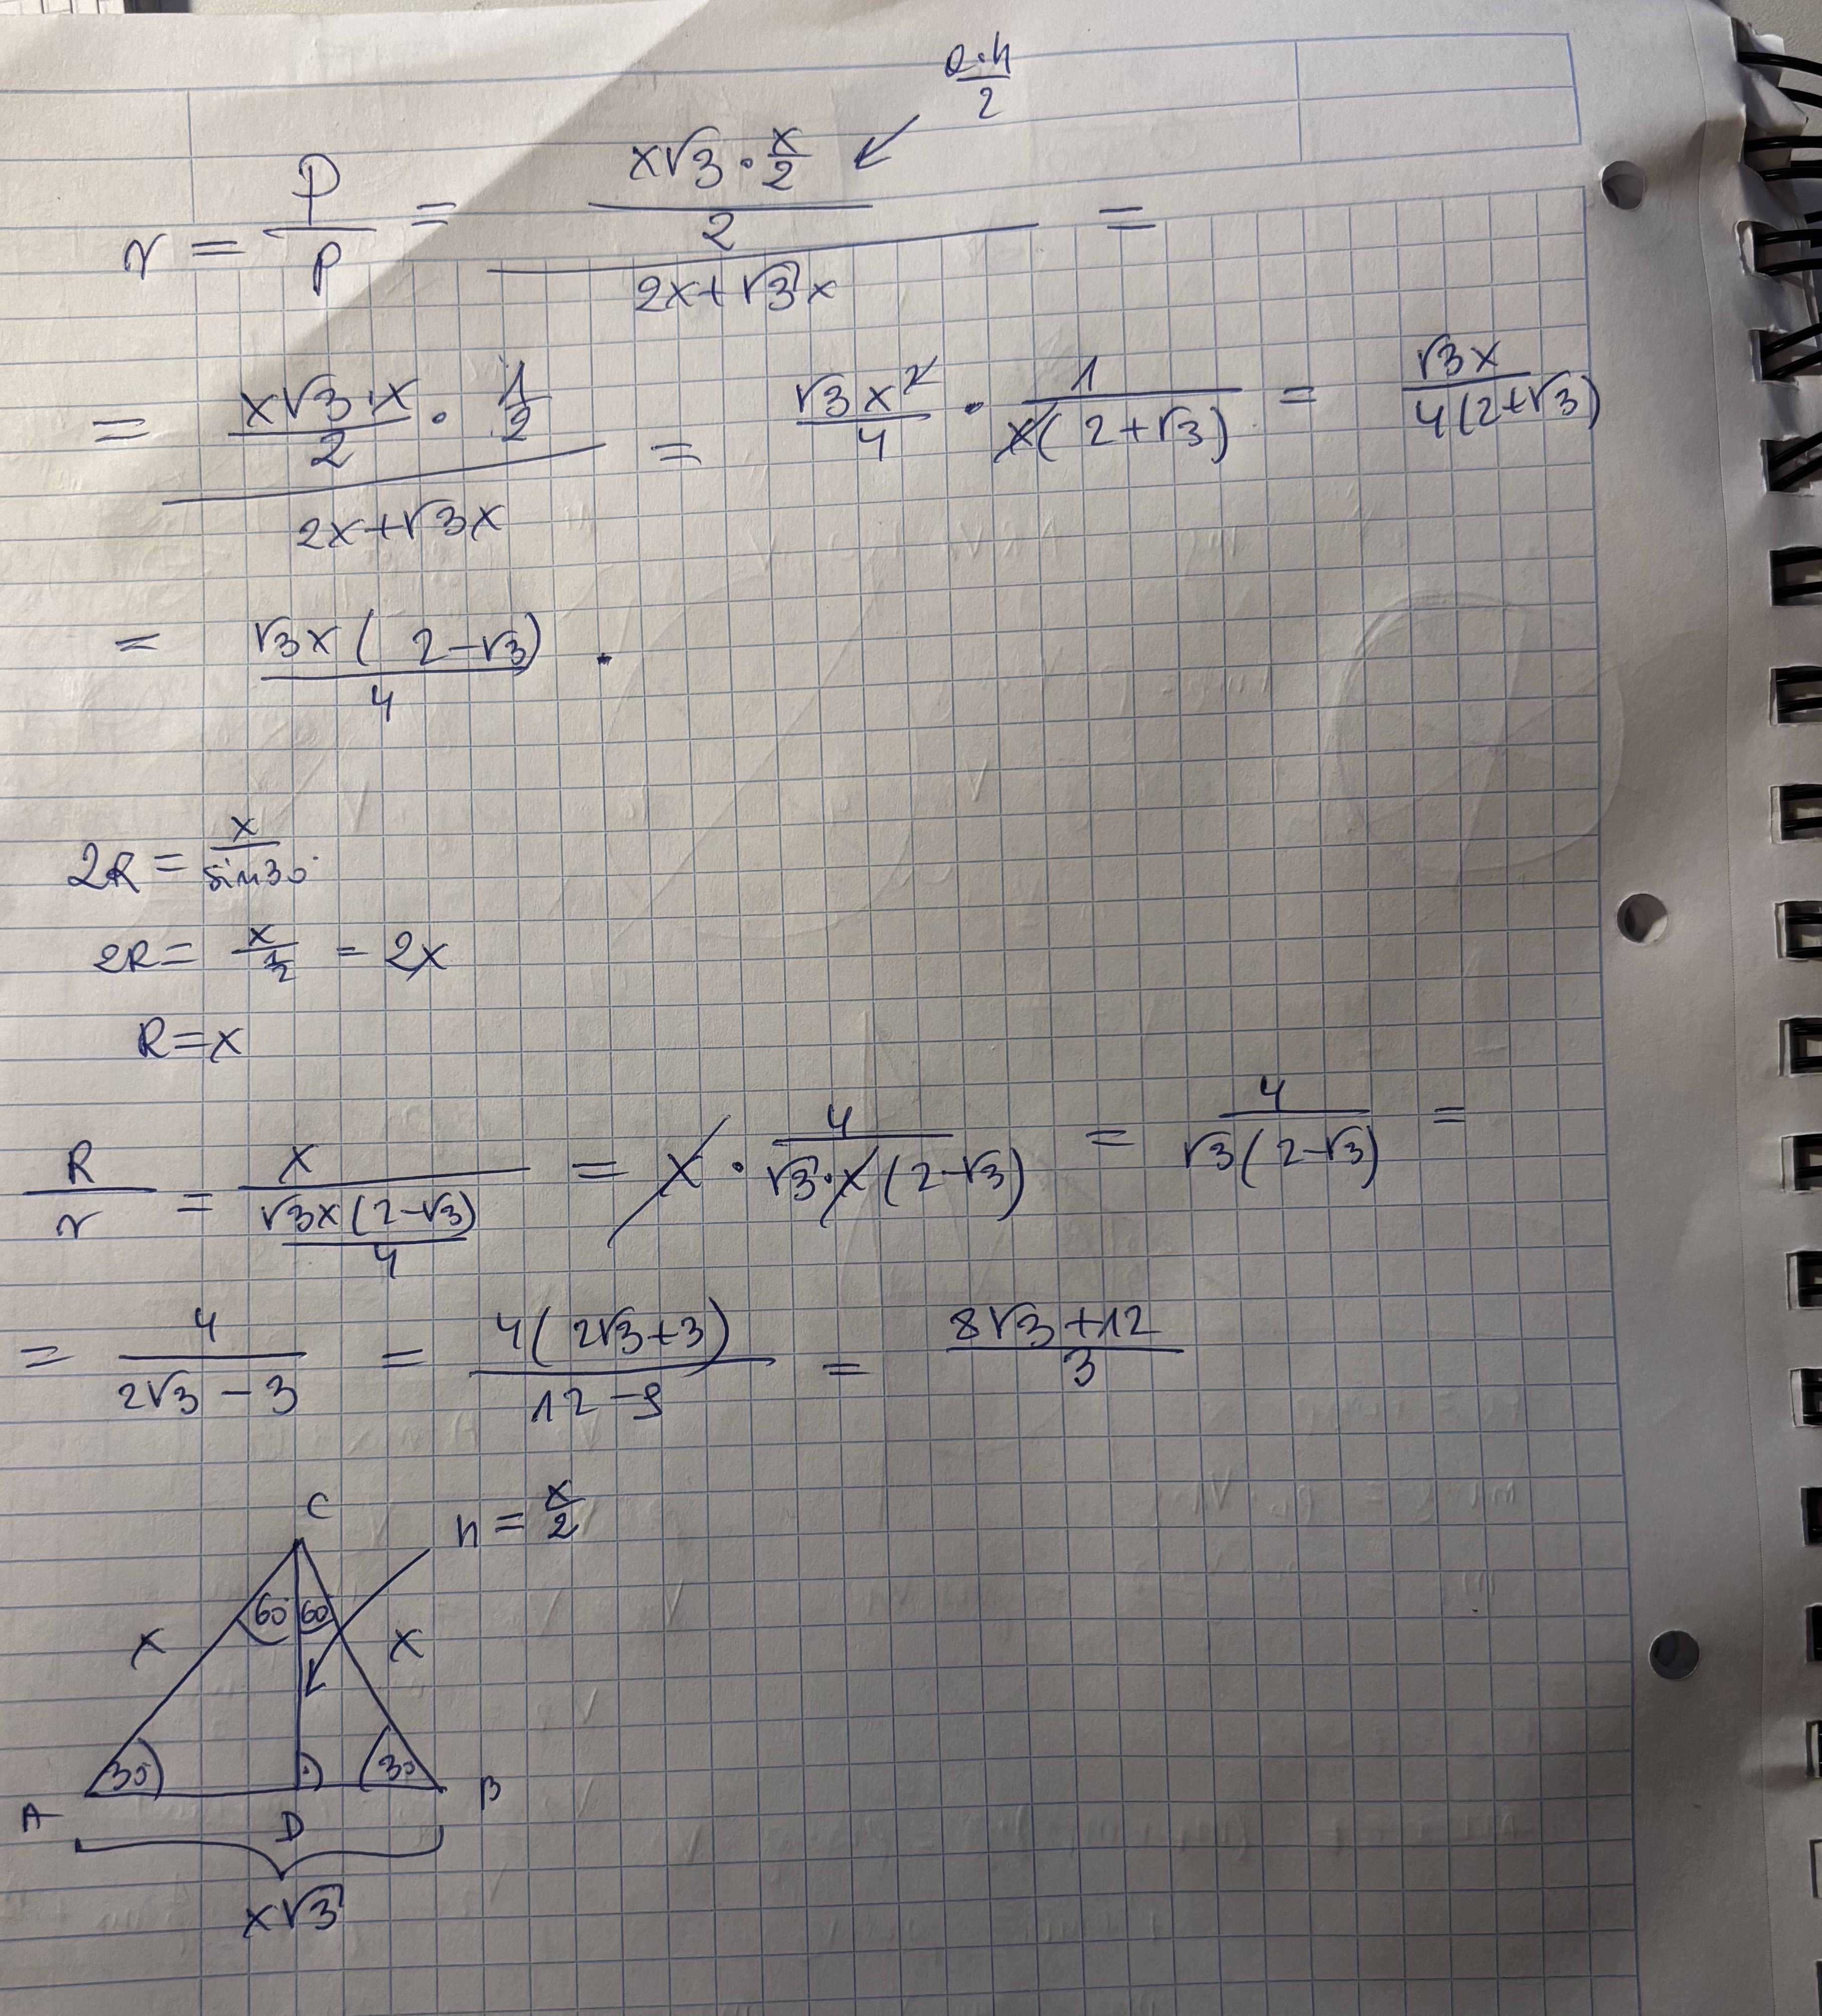 a·h/2
r = P/p = (x√3 · x/2)/2 / (2x+√3x) =
= (x√3·x)/2 · 1/2 / (2x+√3x) = √3x²/4 · 1/(x(2+√3)) = √3x/(4(2+√3))
= √3x(2-√3)/4 .
2R = x/sin30°
2R = x/(1/2) = 2x
R=x
R/r = x/(√3x(2-√3)/4) = x · 4/(√3·x(2-√3)) = 4/(√3(2-√3)) =
= 4/(2√3-3) = 4(2√3+3)/(12-9) = (8√3+12)/3
C
h = x/2
60° 60°
x x
30° 30°
A D B
x√3